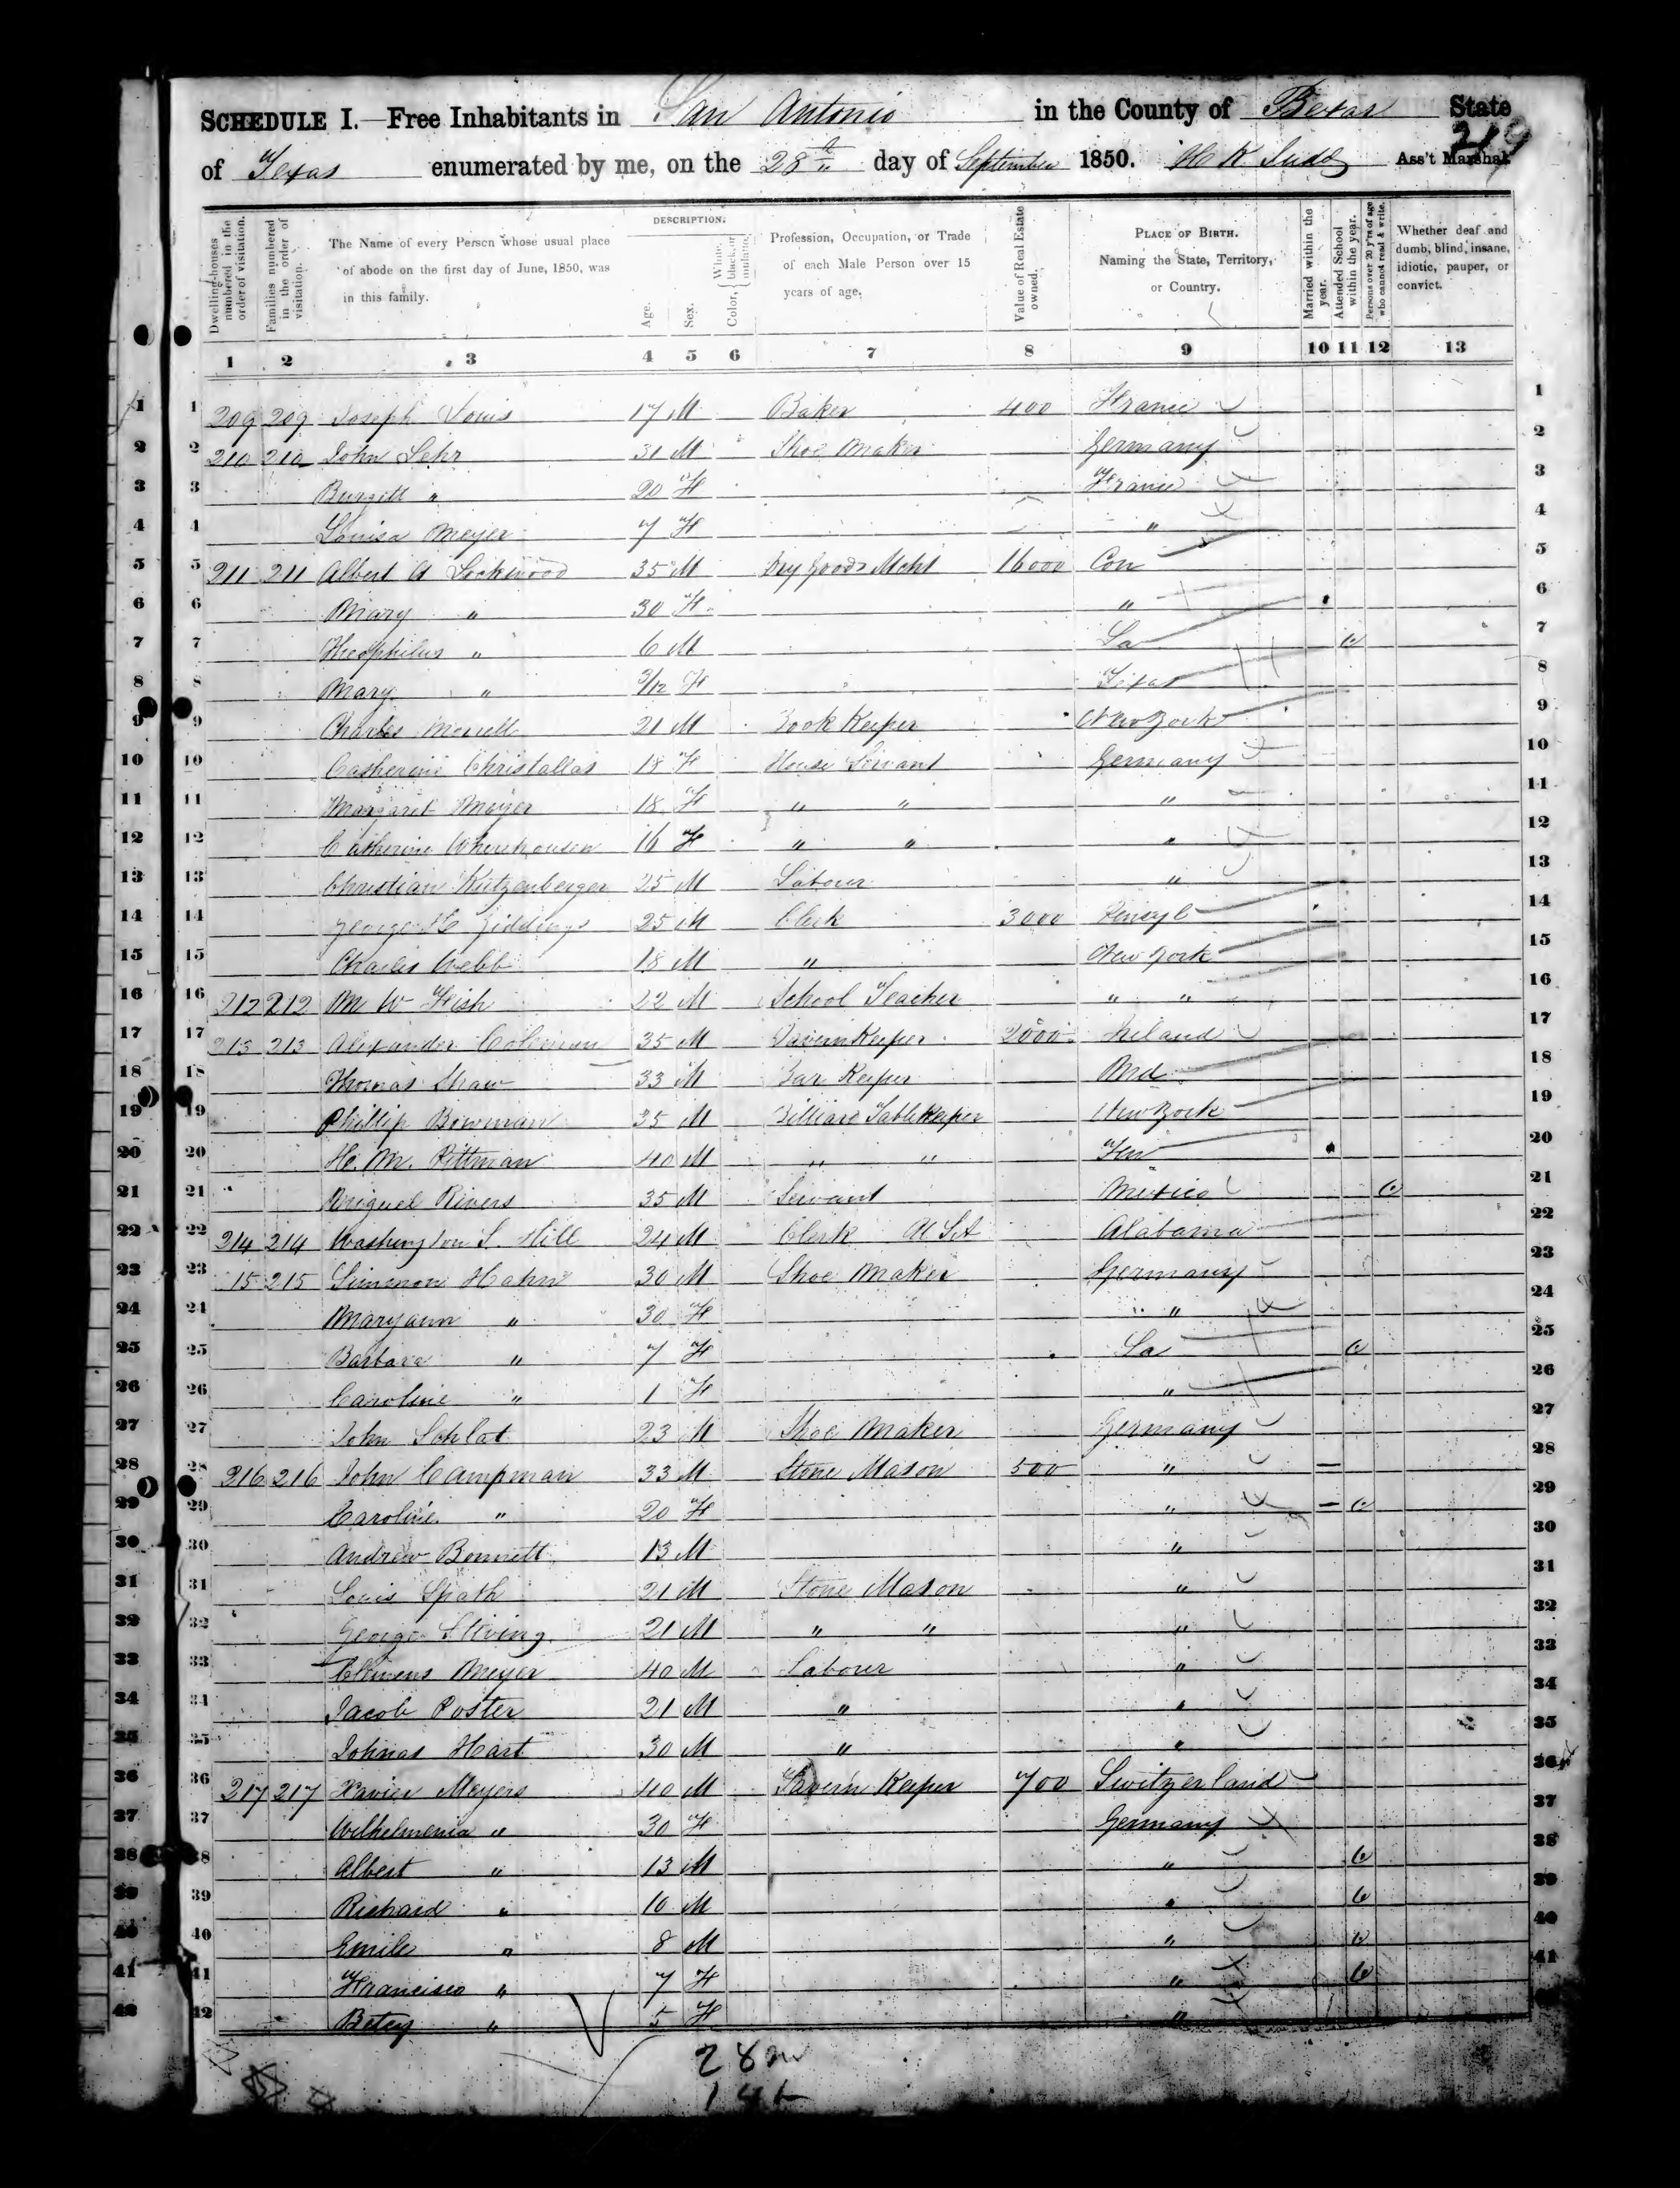 SCHEDULE I.—Free Inhabitants in San Antonio in the County of Bexar State
of Texas enumerated by me, on the 28th day of September 1850. H K Judd Ass't Marshal.
219
Dwelling-houses numbered in the order of visitation.
Families numbered in the order of visitation.
The Name of every Person whose usual place of abode on the first day of June, 1850, was in this family.
DESCRIPTION.
Age.
Sex.
Color, { White, black, or mulatto.
Profession, Occupation, or Trade of each Male Person over 15 years of age.
Value of Real Estate owned.
PLACE OF BIRTH. Naming the State, Territory, or Country.
Married within the year.
Attended School within the year.
Persons over 20 y'rs of age who cannot read & write.
Whether deaf and dumb, blind, insane, idiotic, pauper, or convict.
1 2 3 4 5 6 7 8 9 10 11 12 13
1 209 209 Joseph Louis 17 M Baker 400 France
2 210 210 John Lehr 31 M Shoe Maker Germany
3 " 20 F France
4 Louisa Meyer 7 F "
5 211 211 Albert A Lockwood 35 M Dry Goods Mcht 16000 Con
6 Mary " 30 F "
7 Theophilus " 6 M La
8 Mary " 3/12 F Texas
9 Charles 21 M Book Keeper New York
10 Catherine Christallas 18 F House Servant Germany
11 Margaret Meyer 18 F " " "
12 Catherine 16 F " " "
13 Christian Kutzenberger 25 M Labour "
14 George H Giddings 25 M Clerk 3000
15 Charles Webb 18 M " New York
16 212 212 M W Fish 22 M School Teacher " "
17 213 213 Alexander Coleman 35 M Tavern Keeper 2000 Ireland
18 Thomas Shaw 33 M Bar Keeper Md
19 Phillip Bowman 35 M Billiard Table Keeper New York
20 H. M. Pittman 40 M " " Ten
21 Miguel Rivers 35 M Servant Mexico
22 214 214 Washington S. Hill 24 M Clerk Alabama
23 15 215 Simmon Hahn 30 M Shoe Maker Germany
24 Maryann " 30 F "
25 Barbara " 7 F La
26 Caroline " 1 F "
27 John Schlat 23 M Shoe Maker Germany
28 216 216 John Campman 33 M Stone Mason 500 "
29 Caroline " 20 F "
30 Andrew Bennett 13 M "
31 Louis Spath 21 M Stone Mason "
32 George Stiving 21 M " " "
33 Clemens Meyer 40 M Labour "
34 Jacob Poster 21 M " "
35 Johnas Hart 30 M " "
36 217 217 Xavier Meyers 40 M Tavern Keeper 700 Switzerland
37 Wilhelmenia " 30 F Germany
38 Albert " 13 M "
39 Richard " 10 M "
40 Emile " 8 M "
41 Francisco " 7 F "
42 Betsy " 5 F "
28 m
14 f